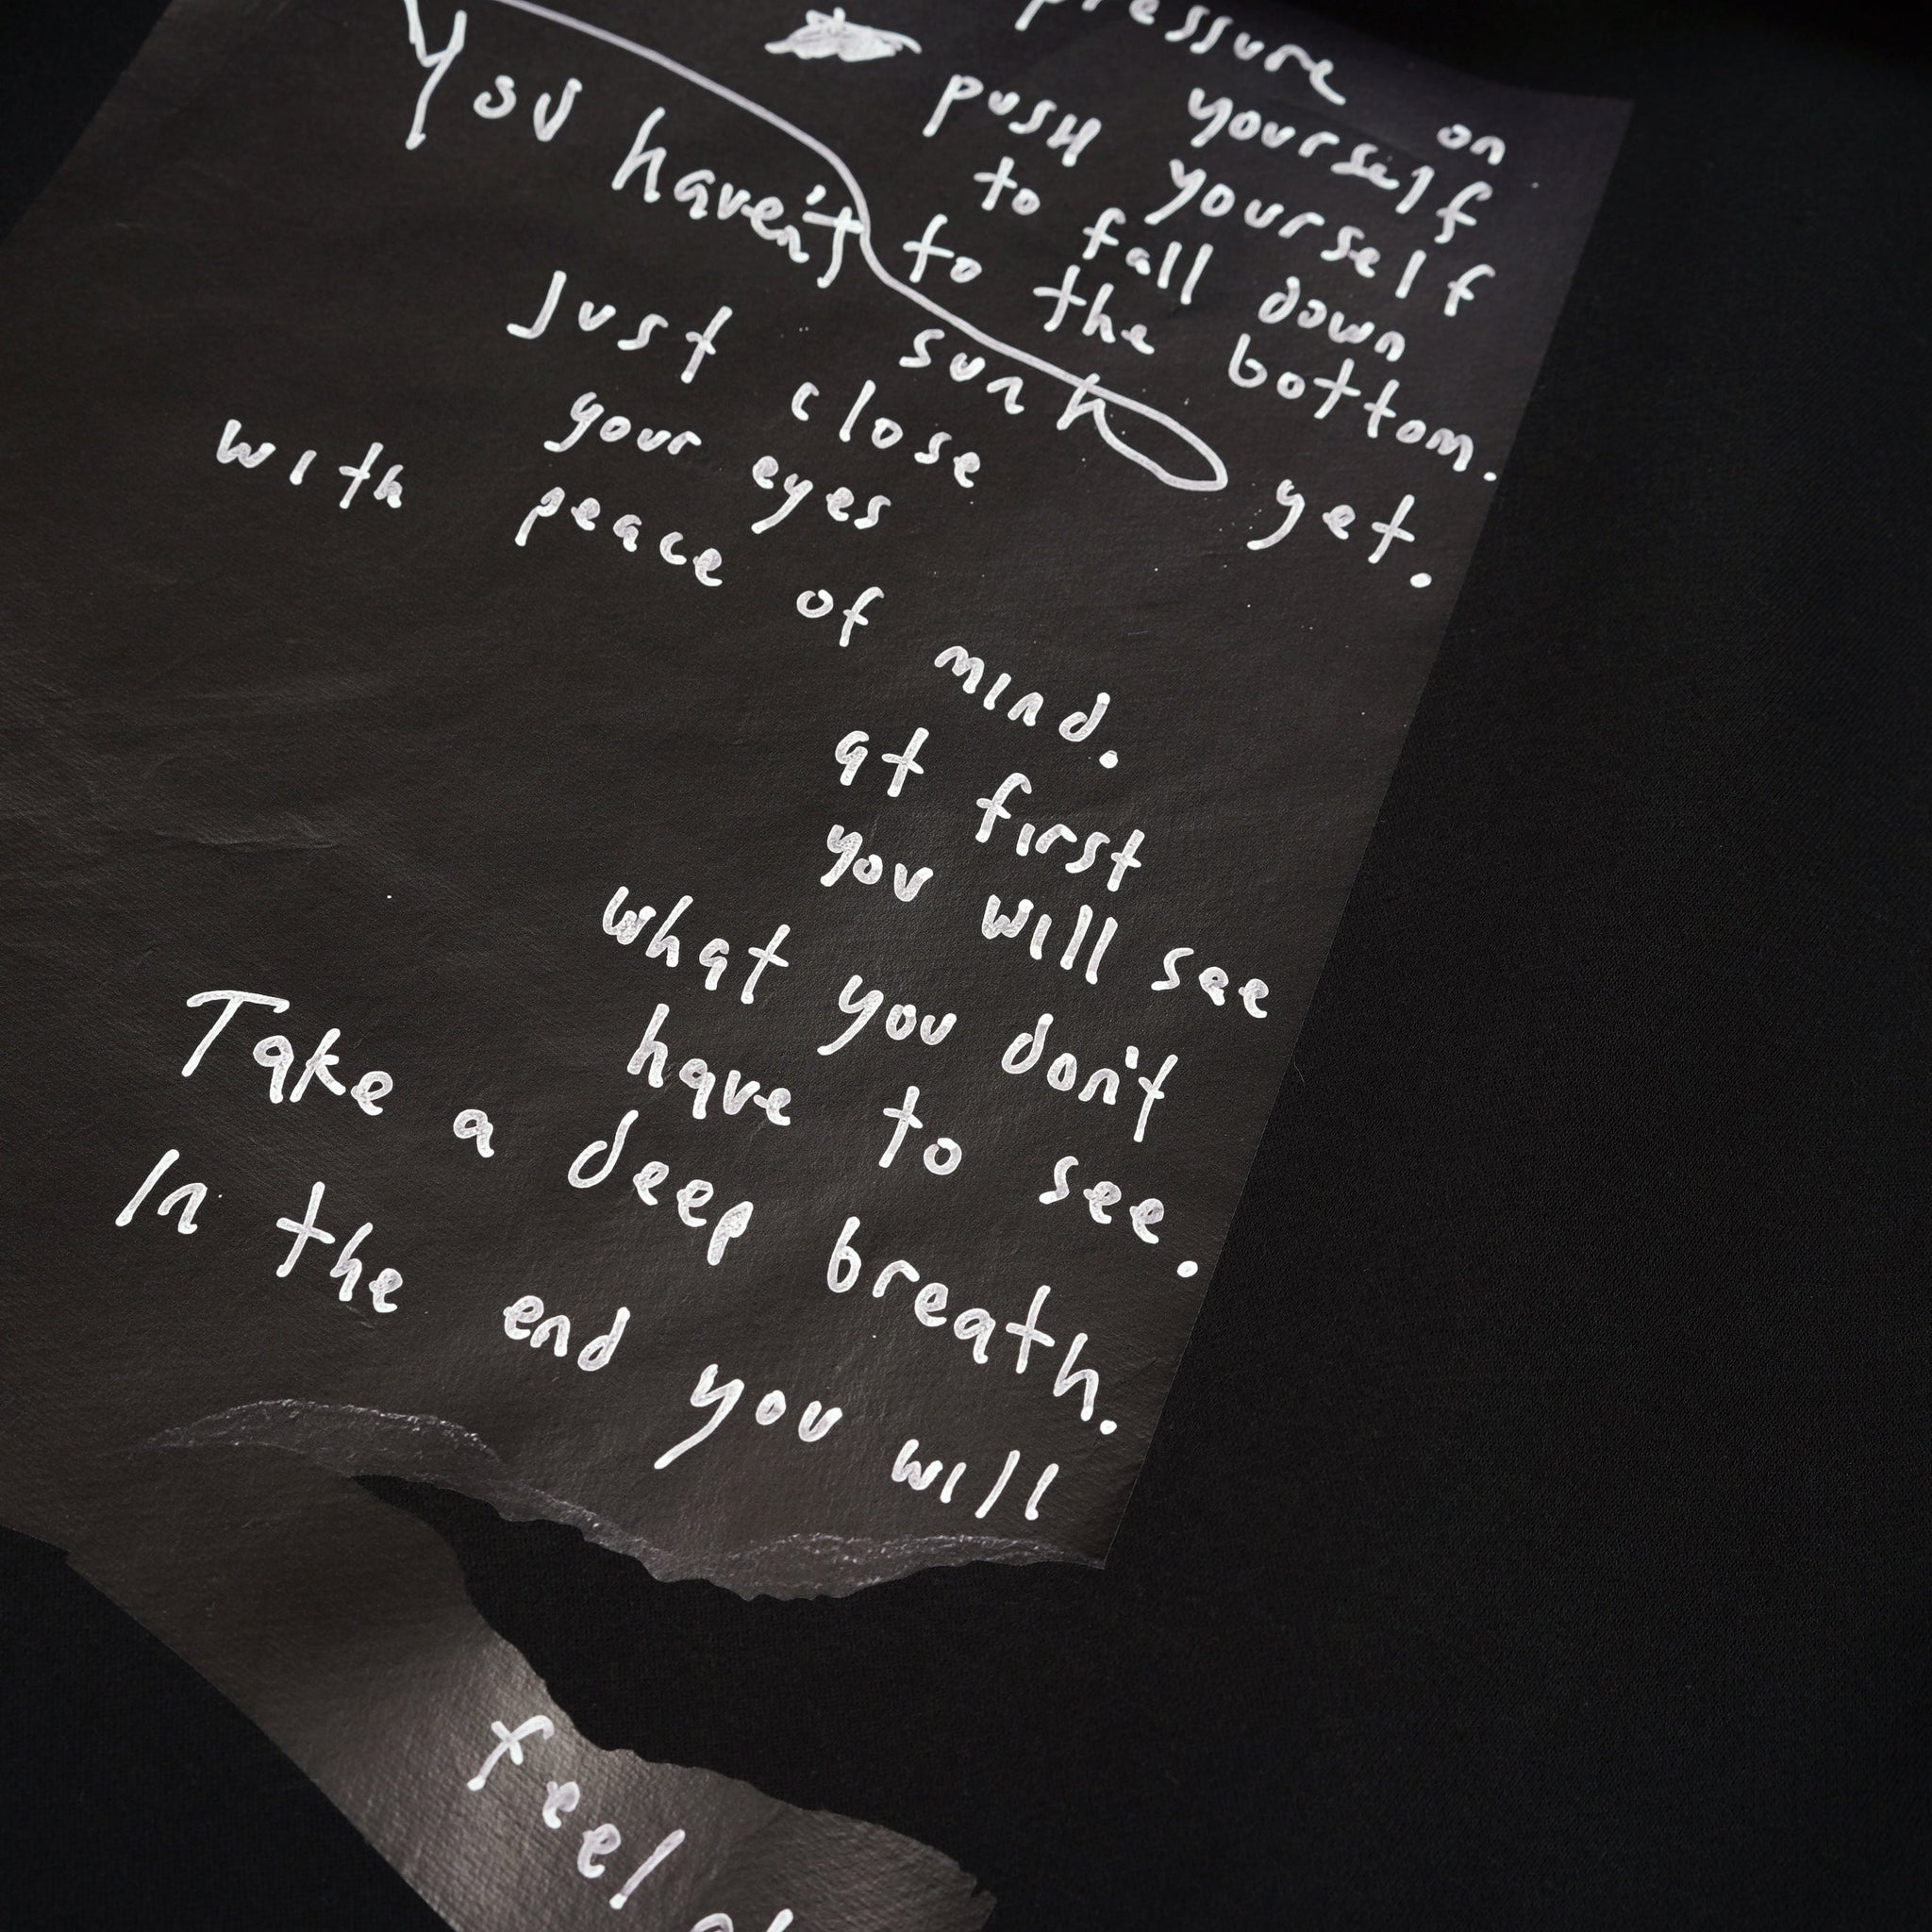 pressure on
yourself
push yourself
to fall down
to the bottom.
You haven't sunk yet.
Just close
your eyes
with peace of mind.
at first
you will see
what you don't
have to see.
Take a deep breath.
In the end you will
feel